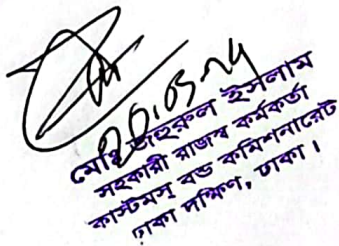 ২০.০৩.২৪
মোঃ তাহেরুল ইসলাম
সহকারী রাজস্ব কর্মকর্তা
কাস্টমস্ বন্ড কমিশনারেট
ঢাকা দক্ষিণ, ঢাকা।